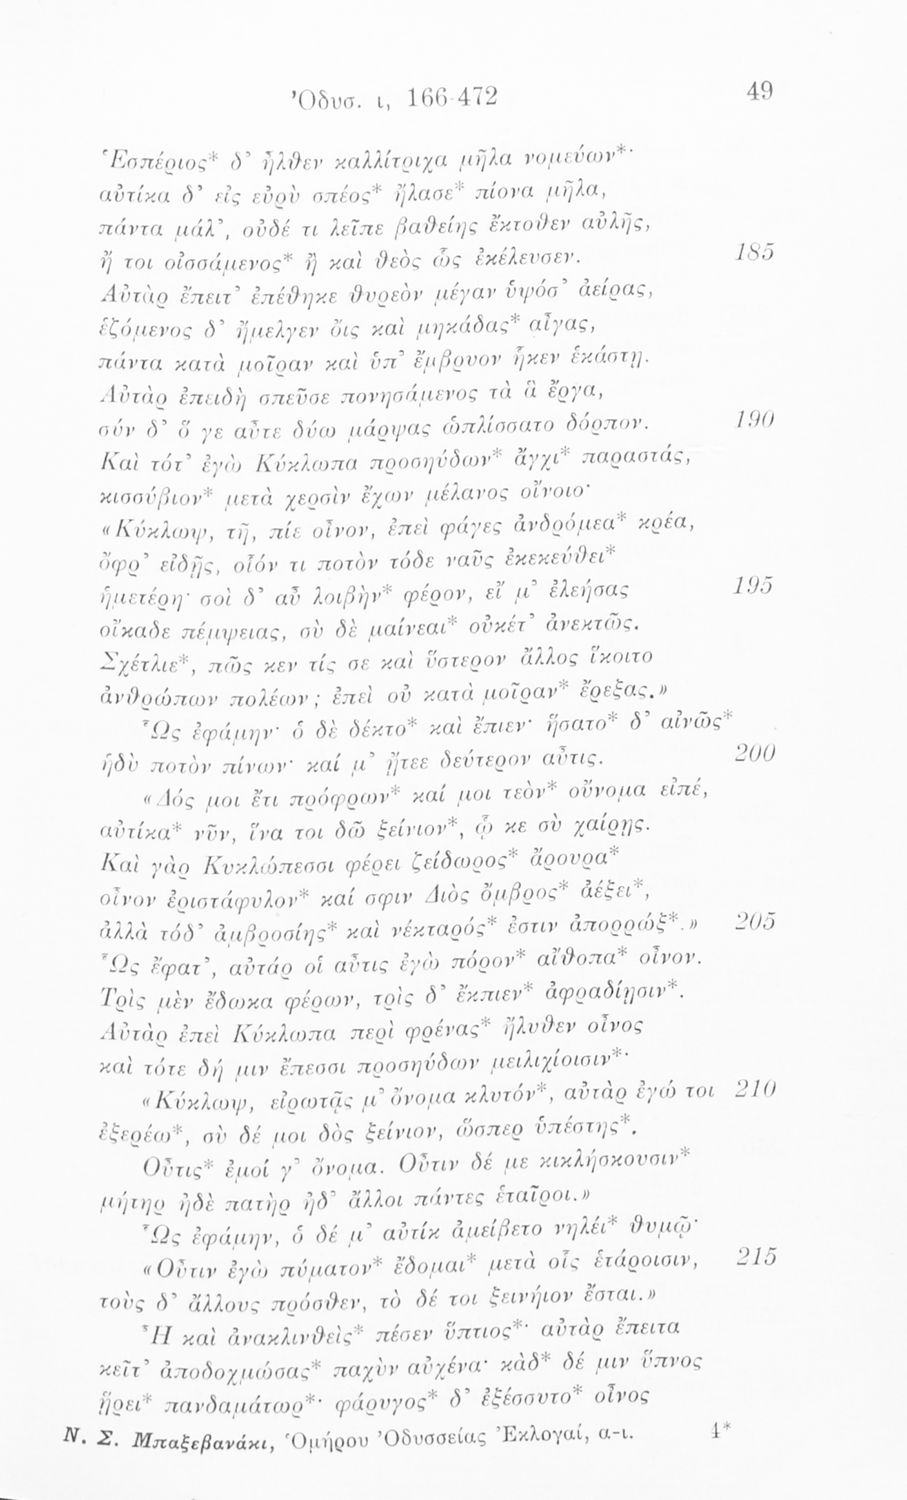 Ὀδυσ. ι, 166-472 49
Ἑσπέριος* δ’ ἦλθεν καλλίτριχα μῆλα νομεύων*·
αὐτίκα δ’ εἰς εὐρὺ σπέος* ἤλασε* πίονα μῆλα,
πάντα μάλ’, οὐδέ τι λεῖπε βαθείης ἔκτοθεν αὐλῆς,
ἤ τοι οἰσσάμενος* ἢ καὶ θεὸς ὣς ἐκέλευσεν. 185
Αὐτὰρ ἔπειτ’ ἐπέθηκε θυρεὸν μέγαν ὑψόσ’ ἀείρας,
ἑζόμενος δ’ ἤμελγεν ὄις καὶ μηκάδας* αἶγας,
πάντα κατὰ μοῖραν καὶ ὑπ’ ἔμβρυον ἧκεν ἑκάστῃ.
Αὐτὰρ ἐπειδὴ σπεῦσε πονησάμενος τὰ ἃ ἔργα,
σύν δ’ ὅ γε αὖτε δύω μάρψας ὡπλίσσατο δόρπον. 190
Καὶ τότ’ ἐγὼ Κύκλωπα προσηύδων* ἄγχι* παραστάς,
κισσύβιον* μετὰ χερσὶν ἔχων μέλανος οἴνοιο·
«Κύκλωψ, τῆ, πίε οἶνον, ἐπεὶ φάγες ἀνδρόμεα* κρέα,
ὄφρ’ εἰδῇς, οἷόν τι ποτὸν τόδε ναῦς ἐκεκεύθει*
ἡμετέρη· σοὶ δ’ αὖ λοιβὴν* φέρον, εἴ μ’ ἐλεήσας 195
οἴκαδε πέμψειας, σὺ δὲ μαίνεαι* οὐκέτ’ ἀνεκτῶς.
Σχέτλιε*, πῶς κεν τίς σε καὶ ὕστερον ἄλλος ἵκοιτο
ἀνθρώπων πολέων; ἐπεὶ οὐ κατὰ μοῖραν* ἔρεξας.»
Ὣς ἐφάμην· ὁ δὲ δέκτο* καὶ ἔπιεν· ἥσατο* δ’ αἰνῶς*
ἡδὺ ποτὸν πίνων· καί μ’ ᾔτεε δεύτερον αὖτις. 200
«Δός μοι ἔτι πρόφρων* καί μοι τεὸν* οὔνομα εἰπέ,
αὐτίκα* νῦν, ἵνα τοι δῶ ξείνιον*, ᾧ κε σὺ χαίρῃς.
Καὶ γὰρ Κυκλώπεσσι φέρει ζείδωρος* ἄρουρα*
οἶνον ἐριστάφυλον* καί σφιν Διὸς ὄμβρος* ἀέξει*,
ἀλλὰ τόδ’ ἀμβροσίης* καὶ νέκταρός* ἐστιν ἀπορρώξ*.» 205
Ὣς ἔφατ’, αὐτάρ οἱ αὖτις ἐγὼ πόρον* αἴθοπα* οἶνον.
Τρὶς μὲν ἔδωκα φέρων, τρὶς δ’ ἔκπιεν* ἀφραδίῃσιν*.
Αὐτὰρ ἐπεὶ Κύκλωπα περὶ φρένας* ἤλυθεν οἶνος
καὶ τότε δή μιν ἔπεσσι προσηύδων μειλιχίοισιν*·
«Κύκλωψ, εἰρωτᾷς μ’ ὄνομα κλυτόν*, αὐτὰρ ἐγώ τοι 210
ἐξερέω*, σὺ δέ μοι δὸς ξείνιον, ὥσπερ ὑπέστης*.
Οὖτις* ἐμοί γ’ ὄνομα. Οὖτιν δέ με κικλήσκουσιν*
μήτηρ ἠδὲ πατὴρ ἠδ’ ἄλλοι πάντες ἑταῖροι.»
Ὣς ἐφάμην, ὁ δέ μ’ αὐτίκ ἀμείβετο νηλέι* θυμῷ·
«Οὖτιν ἐγὼ πύματον* ἔδομαι* μετὰ οἷς ἑτάροισιν, 215
τοὺς δ’ ἄλλους πρόσθεν, τὸ δέ τοι ξεινήιον ἔσται.»
Ἦ καὶ ἀνακλινθεὶς* πέσεν ὕπτιος*· αὐτὰρ ἔπειτα
κεῖτ’ ἀποδοχμώσας* παχὺν αὐχένα· κὰδ* δέ μιν ὕπνος
ᾕρει* πανδαμάτωρ*· φάρυγος* δ’ ἐξέσσυτο* οἶνος
Ν. Σ. Μπαξεβανάκι, Ὁμήρου Ὀδυσσείας Ἐκλογαί, α-ι. 4*